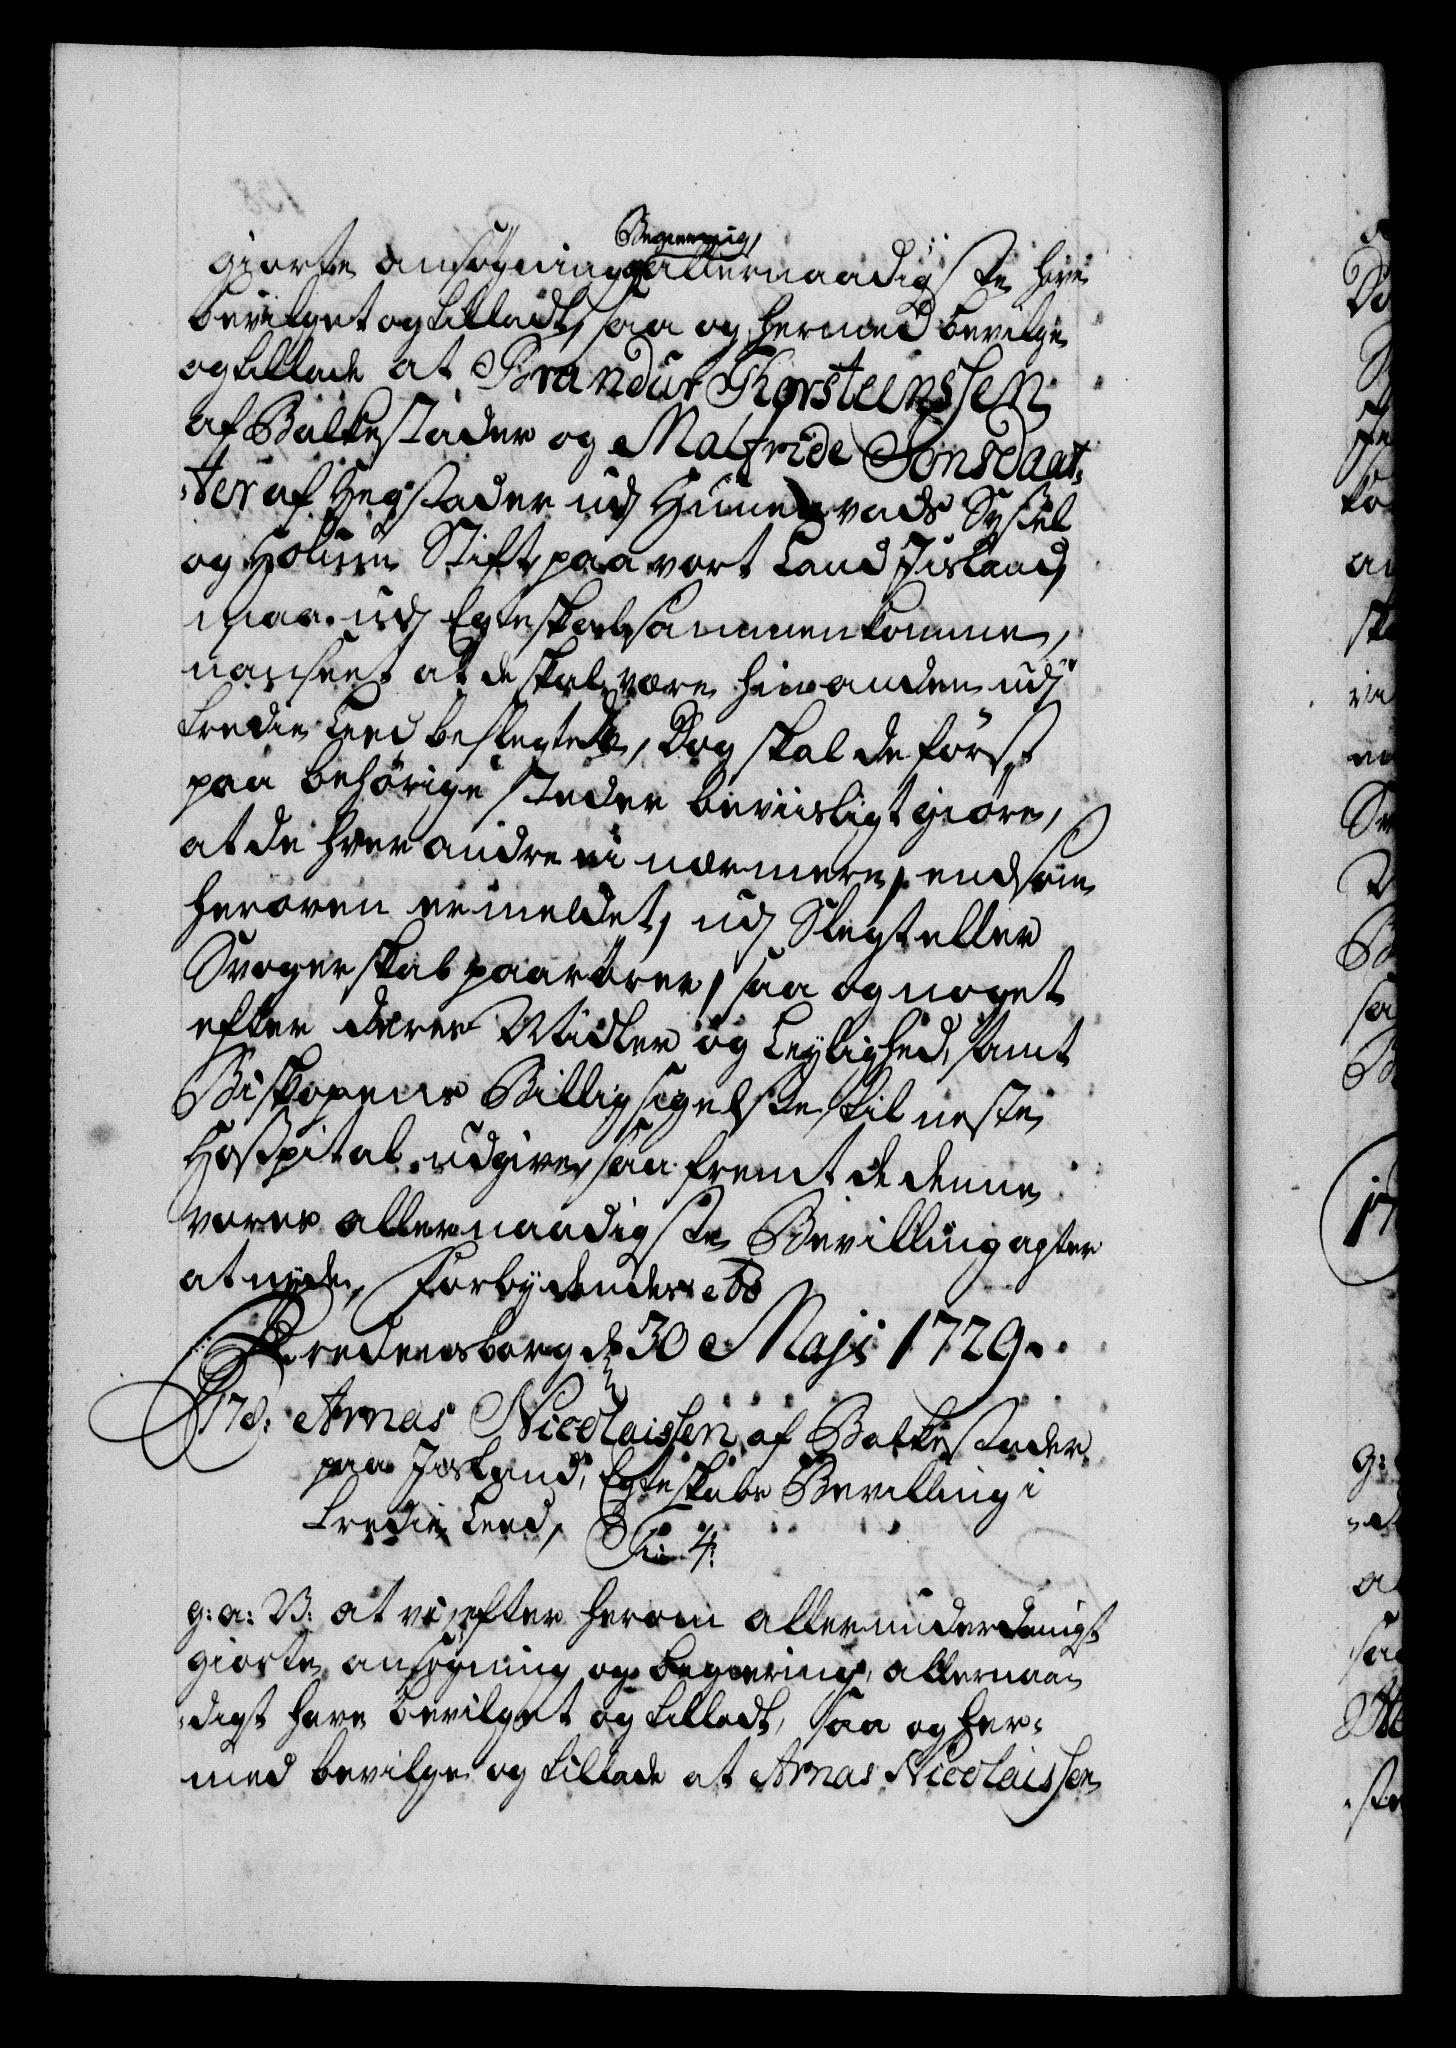 Begiering,
giorte ansøgning og allernaadigste have
bevilget og tilladt, saa og hermed bevilge
og tillade at Brandur Thorsteenssen
af Balkestader og Malfride Jonsdaat-
-ter af Hegstader udj Hunevads Syssel
og Holum Stift paa vort Land Jisland,
maa udj Egteskab sammenkomme,
uanseet at de skal være hinanden udj
tredie Leed beslegtede, Dog skal de först
paa behörige steder beviisligt giöre,
at de hver andre ei nærmere, end som
heroven ermeldet, udj Slegt eller
Svogerskab paarörer, saa og noget
efter deres Midler og Leylighed, samt
Biskopens Billigsigelse til neste
Hospital udgive, saa fremt de denne
vores allernaadigste Bevilling agter
at nyde, Forbydendes etc
Fredensborg d: 30 Maji 1729.
178: Arnas Nicolaissen af Balkestader
paa Jisland, Egteskabs Bevilling i
tredie Leed,
Fri 4:
g: a: V: at vi efter herom allerunderdanigst
giorte ansøgning og begiering, allernaa-
-digst have bevilget og tilladt, saa og her-
med bevilge og tillade at Arnas Nicolaissen